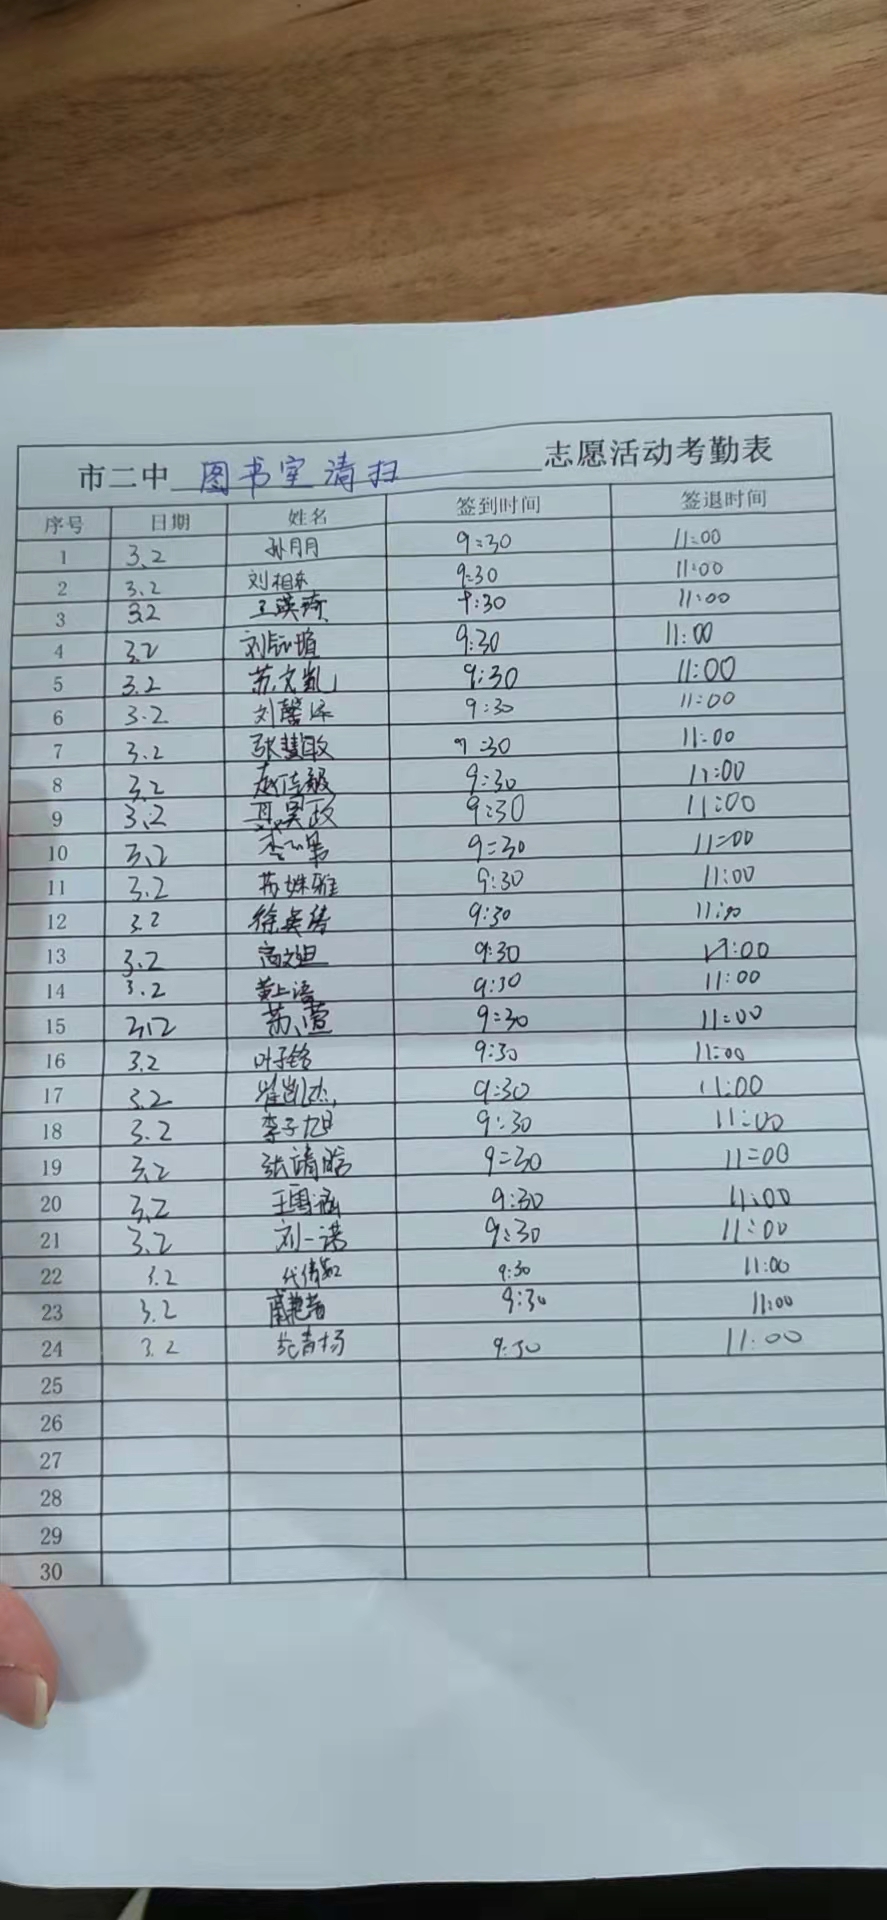 市二中 图书室清扫 志愿活动考勤表
序号 日期 姓名 签到时间 签退时间
1 3.2 孙月月 9:30 11:00
2 3.2 刘相东 9:30 11:00
3 3.2 王瑛琦 9:30 11:00
4 3.2 9:30 11:00
5 3.2 苏文凯 9:30 11:00
6 3.2 9:30 11:00
7 3.2 张慧敏 9:30 11:00
8 3.2 9:30 11:00
9 3.2 9:30 11:00
10 3.2 9:30 11:00
11 3.2 苏姝雅 9:30 11:00
12 3.2 9:30 11:00
13 3.2 9:30 11:00
14 3.2 黄上语 9:30 11:00
15 3.2 苏萱 9:30 11:00
16 3.2 叶子铭 9:30 11:00
17 3.2 崔凯杰 9:30 11:00
18 3.2 李子旭 9:30 11:00
19 3.2 张靖晗 9:30 11:00
20 3.2 王雪涵 9:30 11:00
21 3.2 刘一诺 9:30 11:00
22 3.2 代倩如 9:30 11:00
23 3.2 9:30 11:00
24 3.2 9:30 11:00
25
26
27
28
29
30